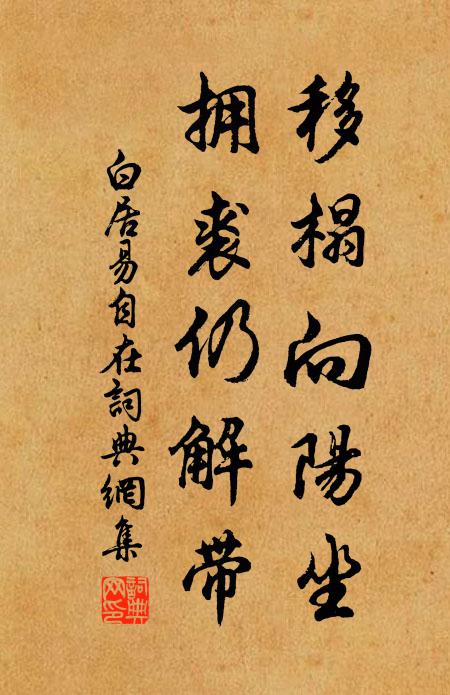 移榻向陽坐
拥裘仍解带
白居易自在詞典網集
詞典网印